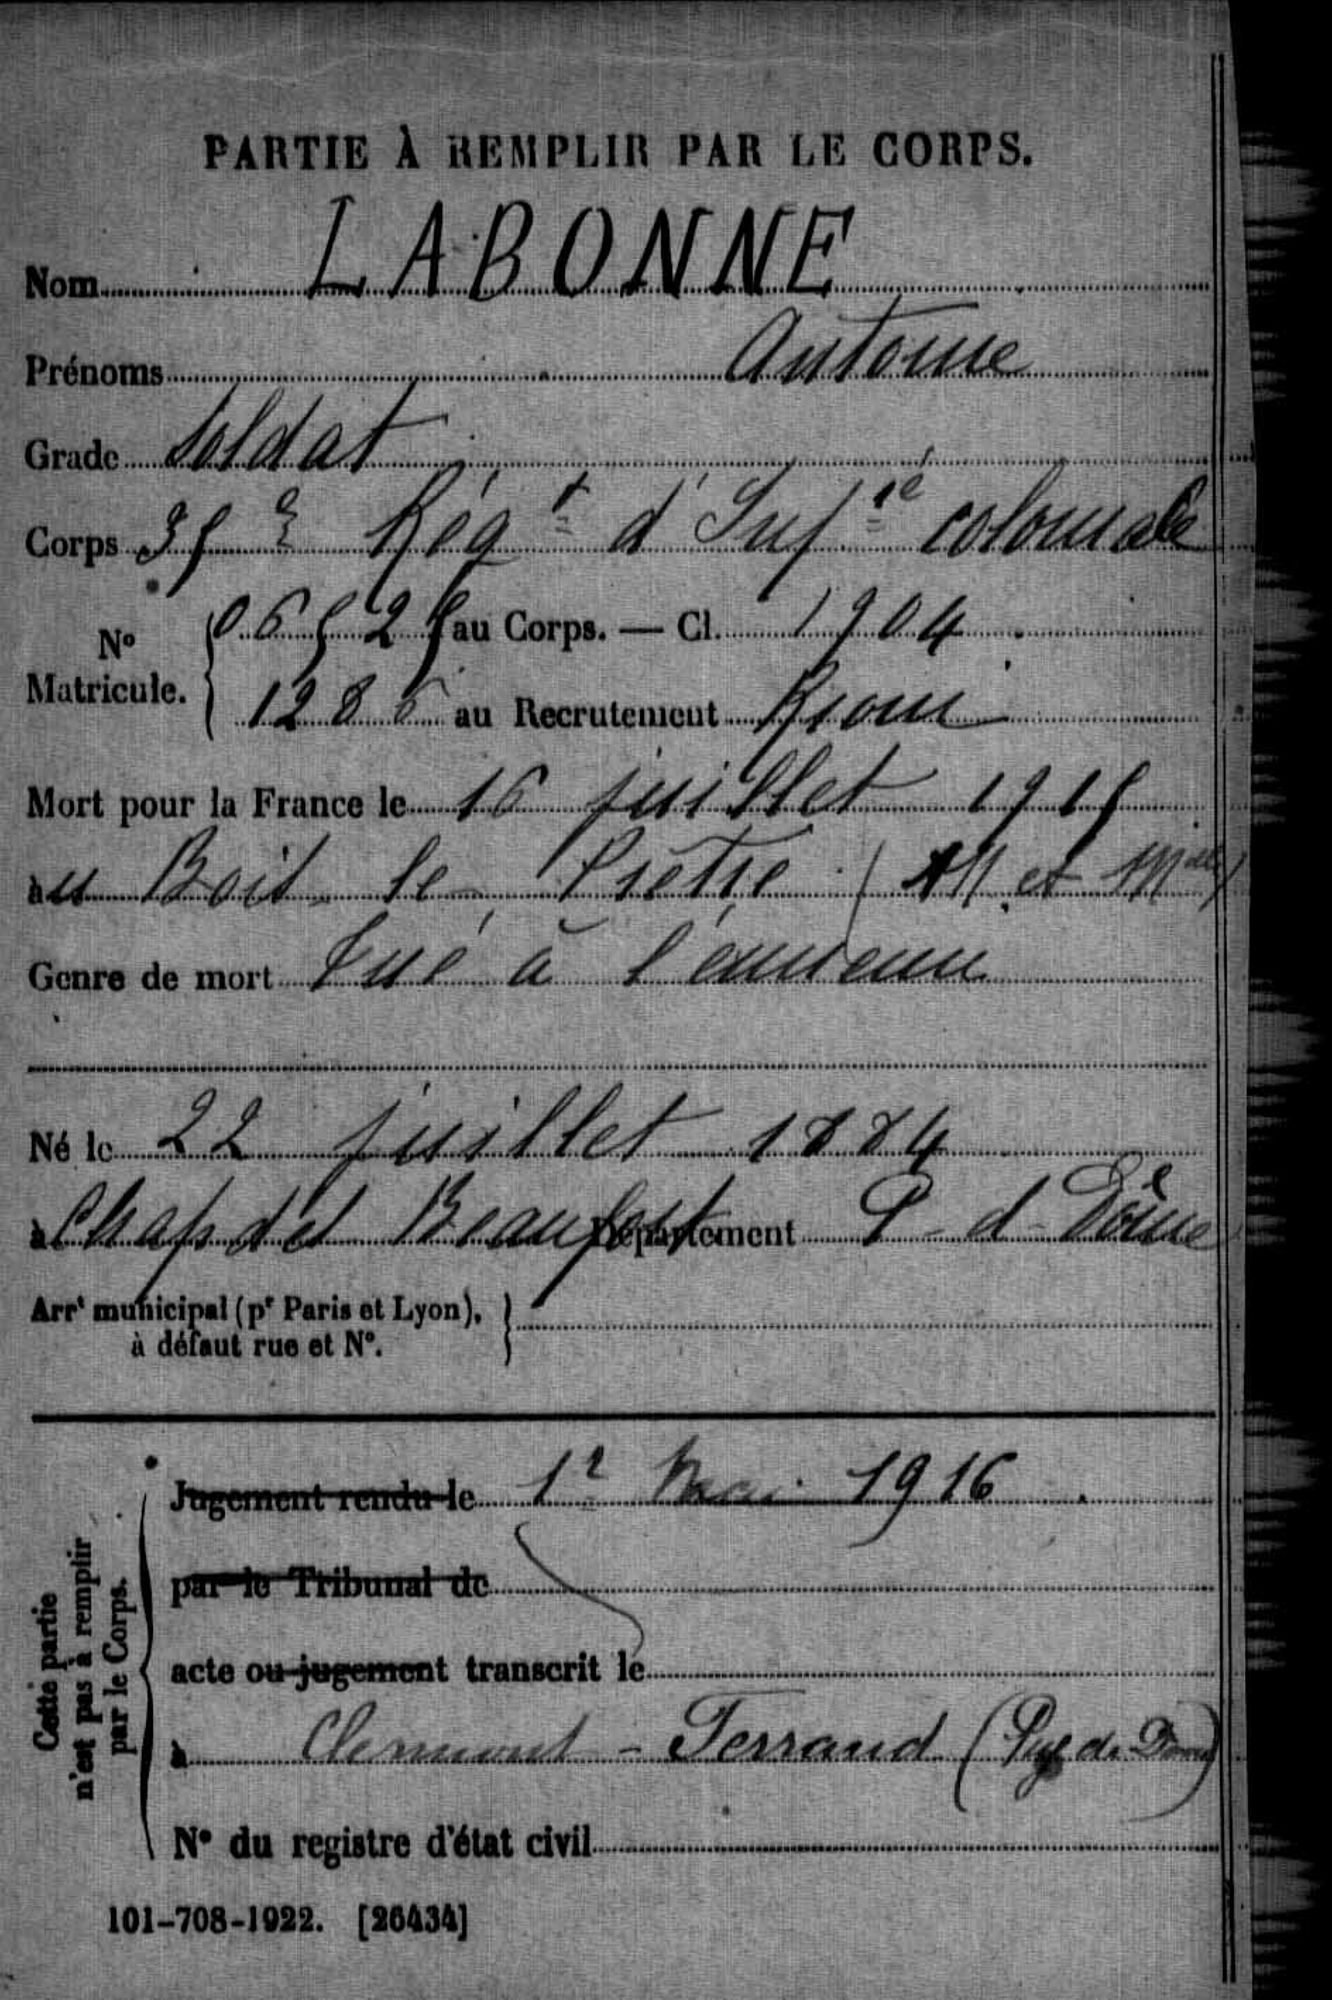 PARTIE À REMPLIR PAR LE CORPS.
Nom LABONNE
Prénoms Antoine
Grade Soldat
Corps 35e Régt d'Infie coloniale
No Matricule. 06525 au Corps. — Cl. 1904
1286 au Recrutement Riom
Mort pour la France le 16 juillet 1915
au Bois le Prêtre (M et Mlle)
Genre de mort Tué à l'ennemi
Né le 22 juillet 1884
à Chapdes Beaufort Département P-d-Dôme
Arrt municipal (pr Paris et Lyon),
à défaut rue et No.
Cette partie
n'est pas à remplir
par le Corps.
Jugement rendu le 12 Mai 1916
par le Tribunal de
acte ou jugement transcrit le
à Clermont-Ferrand (Puy de Dôme)
No du registre d'état civil
101-708-1922. [26434]